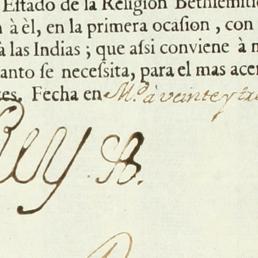 Estado de la Religion Bethlemiti
à èl, en la primera ocasion, con
à las Indias; que assi conviene à m
anto se necessita, para el mas acer
es. Fecha en M.d à veinte y tre
Rey